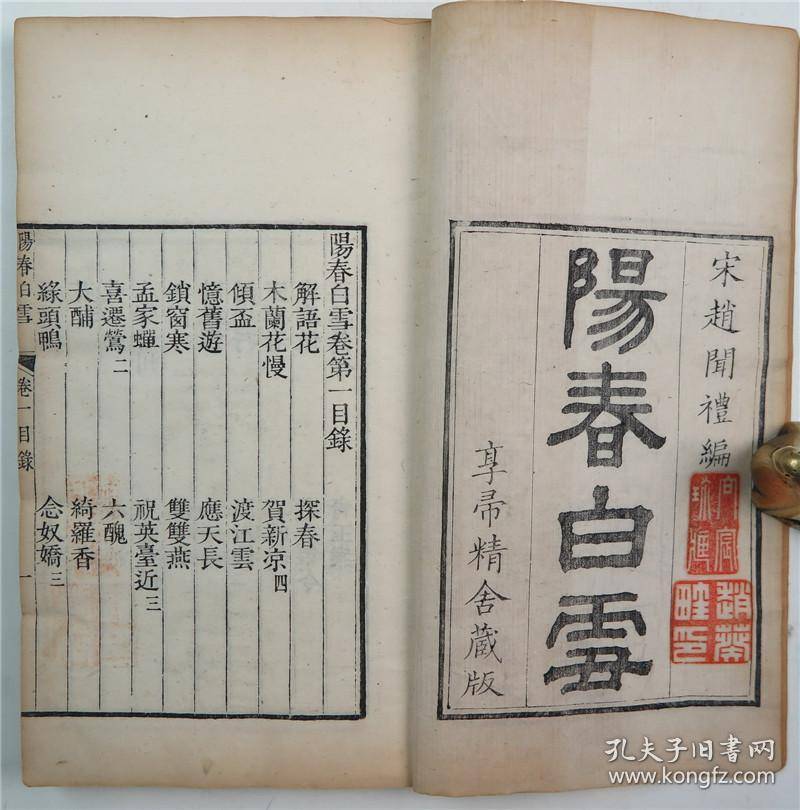 宋趙聞禮編
陽春白雪
享帚精舍藏版
陽春白雪卷第一目錄
解語花 探春
木蘭花慢 賀新凉四
傾盃 渡江雲
憶舊遊 應天長
鎖窗寒 雙雙燕
孟家蟬 祝英臺近三
喜遷鶯二 六醜
大酺 綺羅香
綠頭鴨 念奴嬌三
陽春白雪 卷一目錄 一
孔夫子旧书网
www.kongfz.com